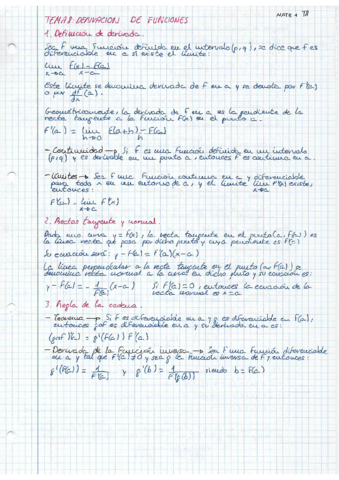 MATE 1 T8
TEMA 8: DERIVACIÓN DE FUNCIONES
1. Definición de derivada.
Sea F una función definida en el intervalo (p,q), se dice que F es
diferenciable en a si existe el límite:
lim F(x) - F(a)
x→a x-a
Este límite se denomina derivada de F en a y se denota por F'(a)
o por dF/dx (a).
Geométricamente, la derivada de F en a es la pendiente de la
recta tangente a la función F(x) en el punto a.
F'(a) = lim F(a+h) - F(a)
h→0 h
- Continuidad → Si F es una función definida en un intervalo
(p,q) y es derivable en un punto a, entonces F es continua en a.
- Límites → Sea F una función continua en a y diferenciable
para todo x en un entorno de a, y el límite lim F'(x) existe,
x→a
entonces:
F'(a) = lim F'(x)
x→a
2. Rectas tangente y normal.
Dada una curva y = F(x), la recta tangente en el punto (a, F(a)) es
la línea recta que pasa por dicho punto y cuya pendiente es F'(a)
Su ecuación será: y - F(a) = F'(a)(x-a)
La línea perpendicular a la recta tangente en el punto (a, F(a)) se
denomina recta normal a la curva en dicho punto y su ecuación es:
y - F(a) = - 1/F'(a) (x-a) Si F'(a) = 0, entonces la ecuación de la
recta normal es x = a
3. Regla de la cadena.
- Teorema → Si F es diferenciable en a y g es diferenciable en F(a),
entonces g∘F es diferenciable en a y su derivada en a es:
(g∘F)'(a) = g'(F(a)) F'(a)
- Derivada de la función inversa → Sea F una función diferenciable
en a y tal que F'(a) ≠ 0 y sea g la función inversa de F, entonces:
g'(F(a)) = 1/F'(a) y g'(b) = 1/F'(g(b)) siendo b = F(a)